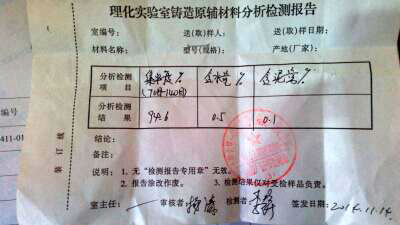 理化实验室铸造原辅材料分析检测报告
室编号： 送(取)样人： 送(取)样日期：
材料名称： 型号(规格)： 产地(厂家)：
分析检测 集中度% 含水量% 含泥量%
项目 (70目-140目)
分析检测 94.6 0.5 0.1
结果
结论：
备注：
说明： 1. 无“检测报告专用章”无效。
2. 报告涂改作废。 3. 检测结果仅对受检样品负责。
室主任 审核者 检测者 签发日期 2014.11.14
装订线
编号
411-01